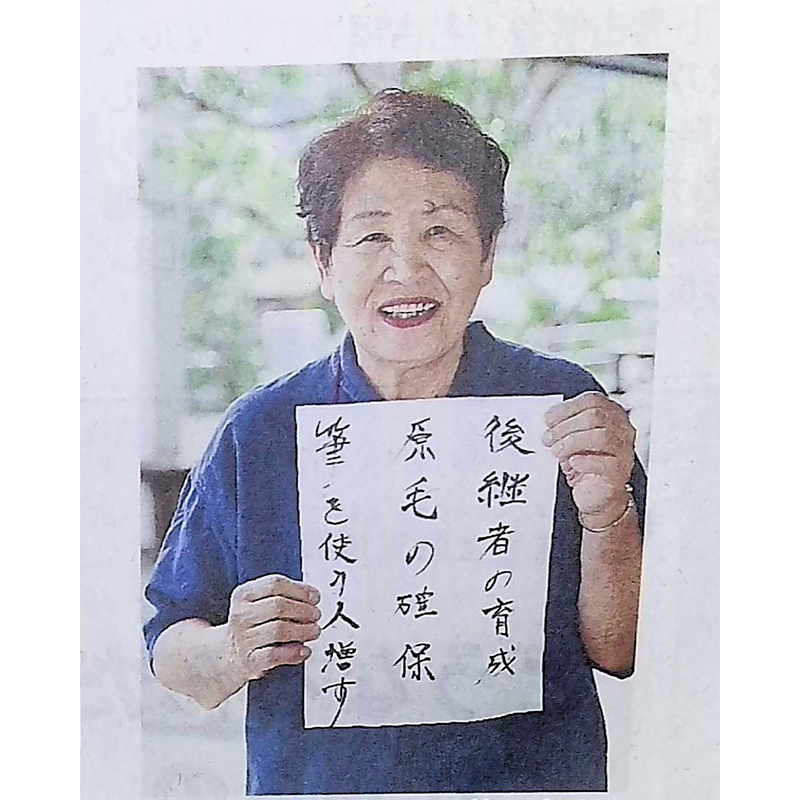 後継者の育成
原毛の確保
筆を使う人増す